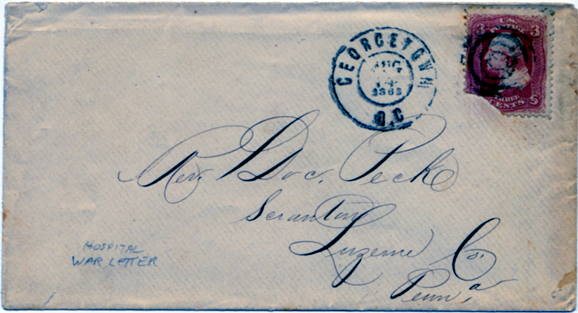 GEORGETOWN
AUG
D.C
U.S. POSTAGE
3 3
THREE CENTS
Rev. Doc. Peck
Scranton
Luzerne Co.
Penn,a
HOSPITAL
WAR LETTER